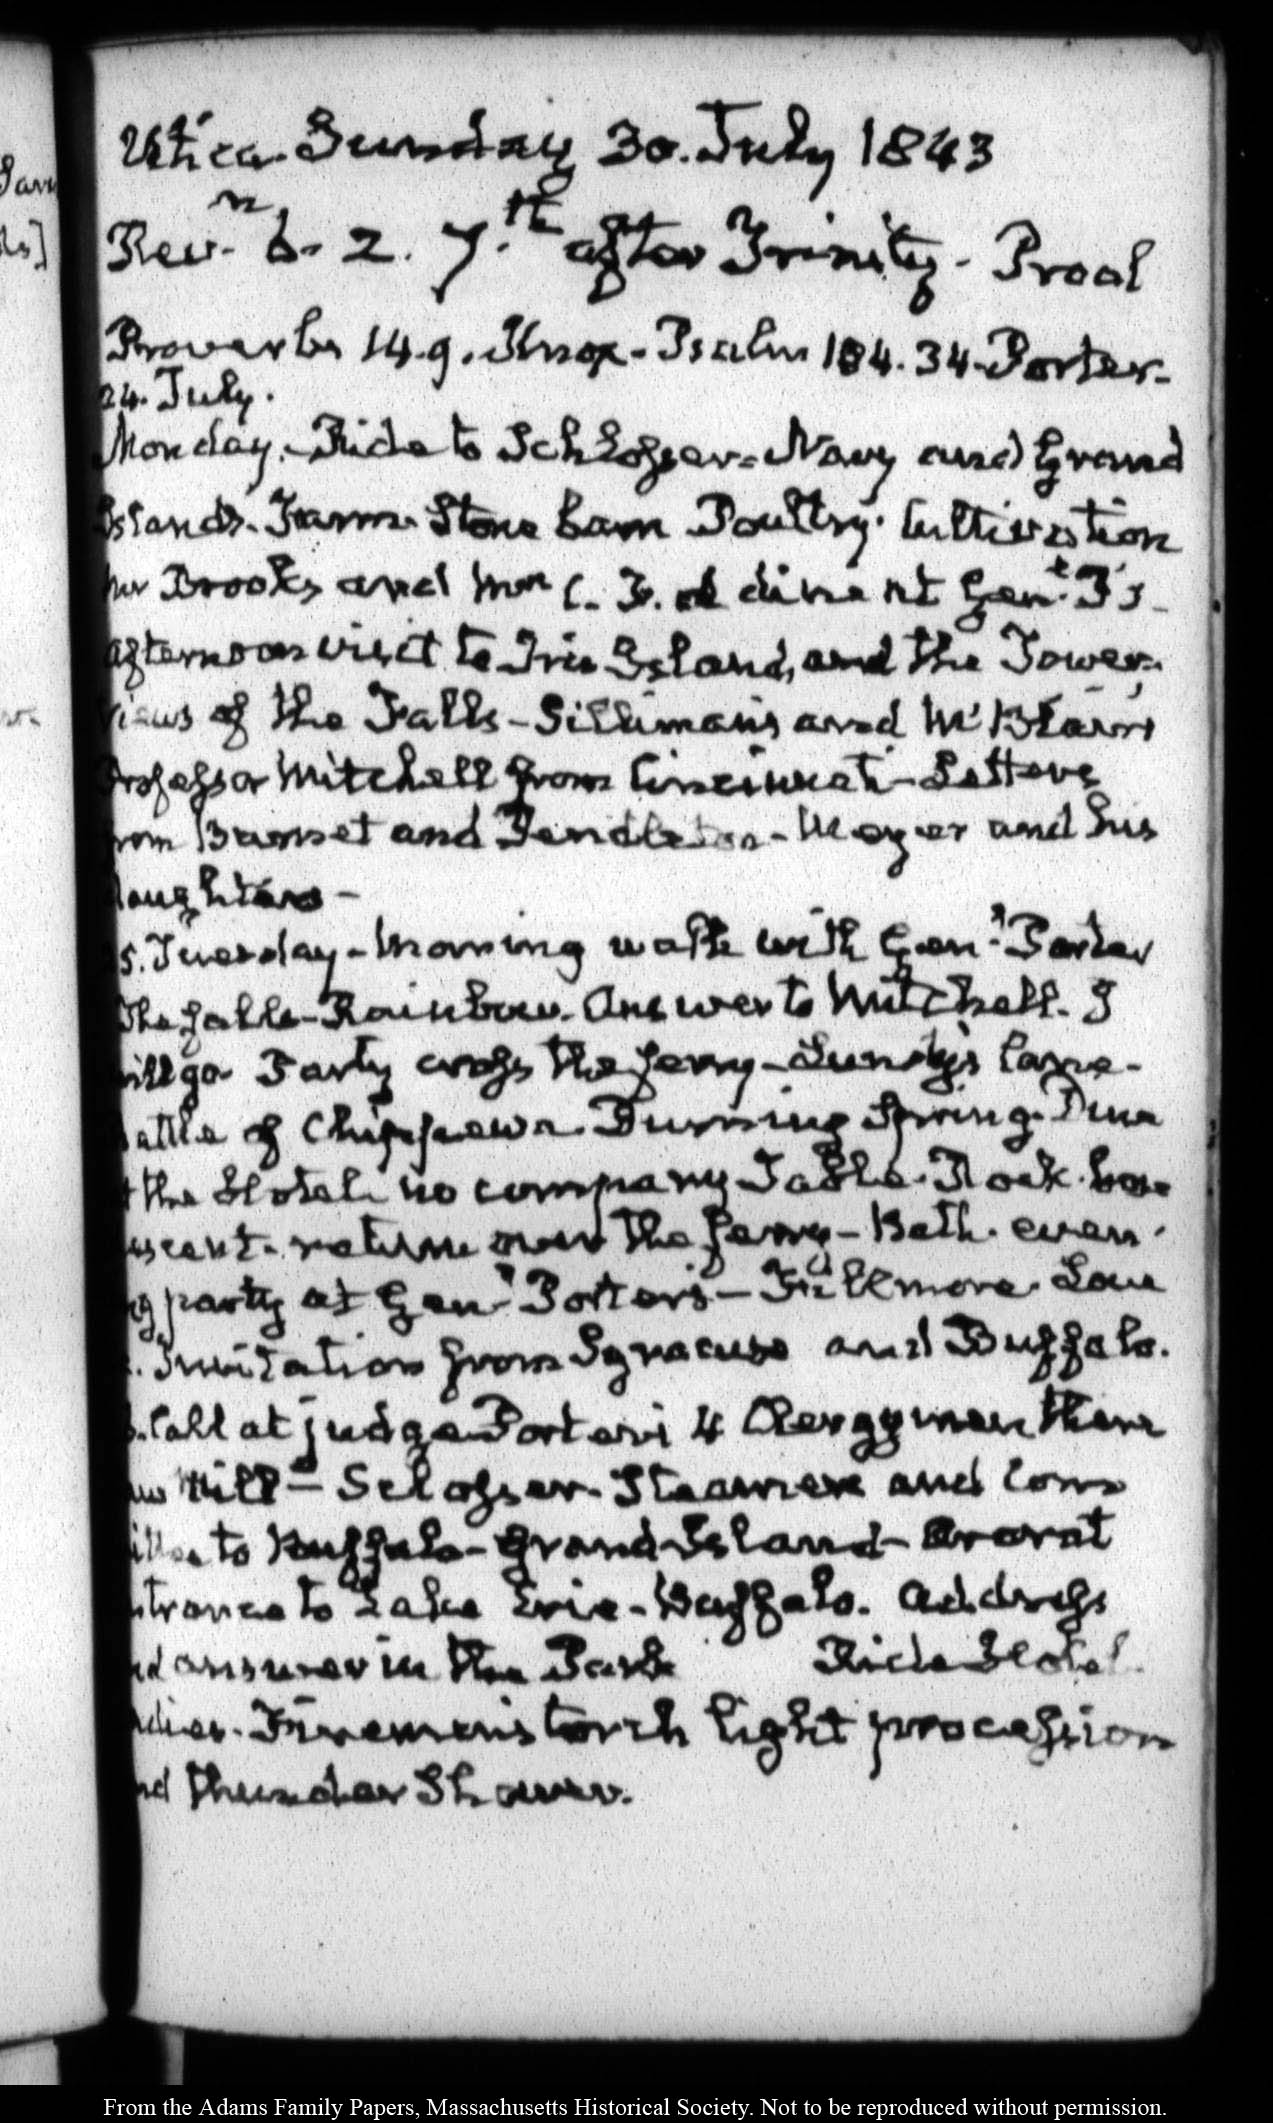 Utica. Sunday 30. July 1843
Rev.n 6. 2. 7.th after Trinity. Proal
Proverbs 14.9. Knox. Psalm 104.34. Porter.
24. July.
Monday. Ride to Schlosser. Navy and Grand
Islands. Farm. Stone barn Poultry. Cultivation
Mr Brooks and Mrs C. dine at Gen.
afternoon visit to Iris Island, and the Tower.
views of the Falls - Silliman's and McBlair's
Professor Mitchell from Cincinnati - Letters
from Burnet and Pendleton - Meyer and his
daughters -
25. Tuesday - Morning walk with Gen.l Porter
The falls - Rainbow. Answer to Mitchell. I
will go Party cross the ferry - Lundy's lane -
Battle of Chippewa. Burning Spring. Dine
at the Hotel no company Table Rock.
return over the ferry - Bath. even
ing party at Gen.l Porter's - Fillmore. Love
Invitation from Syracuse and Buffalo.
Call at judge Porter's 4 Clergymen there
Mill - Schlosser. Steamer and
to Buffalo - Grand Island - Ararat
Entrance to Lake Erie - Buffalo. Address
and answer in the Park Ride Hotel.
Ladies. Firemen's torch light procession
and thunder Shower.
From the Adams Family Papers, Massachusetts Historical Society. Not to be reproduced without permission.